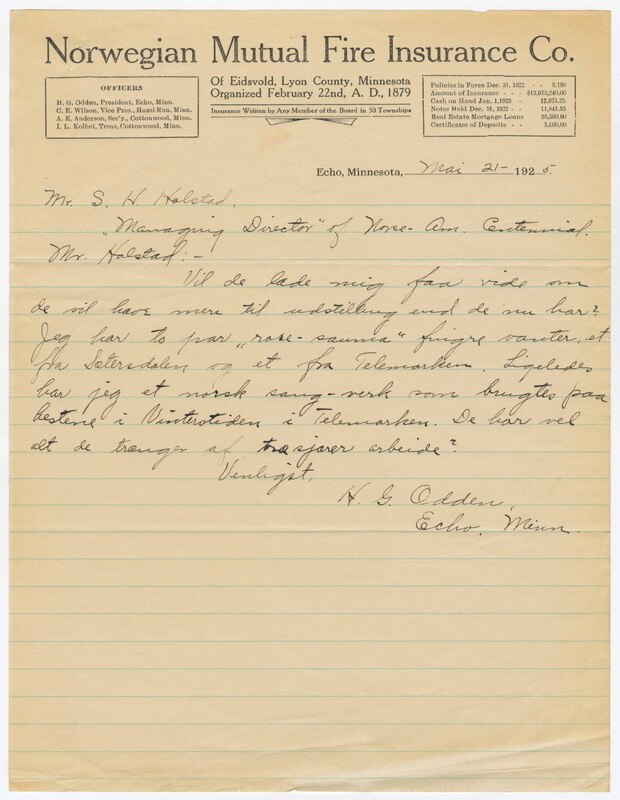 Norwegian Mutual Fire Insurance Co.
OFFICERS
H. G. Odden, President, Echo, Minn.
C. E. Wilson, Vice Pres., Hazel Run, Minn.
A. E. Anderson, Sec'y., Cottonwood, Minn.
I. L. Kolhei, Treas, Cottonwood, Minn.
Of Eidsvold, Lyon County, Minnesota
Organized February 22nd, A. D., 1879
Insurance Written by Any Member of the Board in 50 Townships
Policies in Force Dec. 31, 1922 - - 3,186
Amount of Insurance - - $13,073,240.00
Cash on Hand Jan. 1, 1923 - 12,675.25
Notes Held Dec. 31, 1922 - - 11,841.55
Real Estate Mortgage Loans 36,500.00
Certificates of Deposits - - 5,600.00
Echo, Minnesota, Mai 21- 1925.
Mr. S. H Holstad,
"Managing Director" of Norse-Am. Centennial.
Mr. Holstad:-
Vil de lade mig faa vide om
de vil have mere til udstilling end de nu har?
Jeg har to par "rose-sauma" fingre vanter, et
fra Sætersdalen og et fra Telemarken. Ligeledes
har jeg et norsk sang-verk som brugtes paa
hestene i Vinterstiden i Telemarken. De har vel
alt de trænger af træsjærer arbeide?
Venligst,
H. G. Odden,
Echo, Minn.